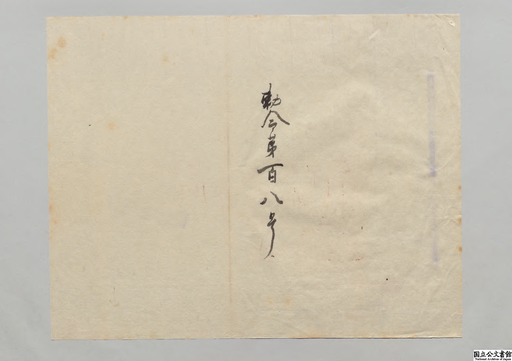 勅令第百八号
国立公文書館
National Archives of Japan